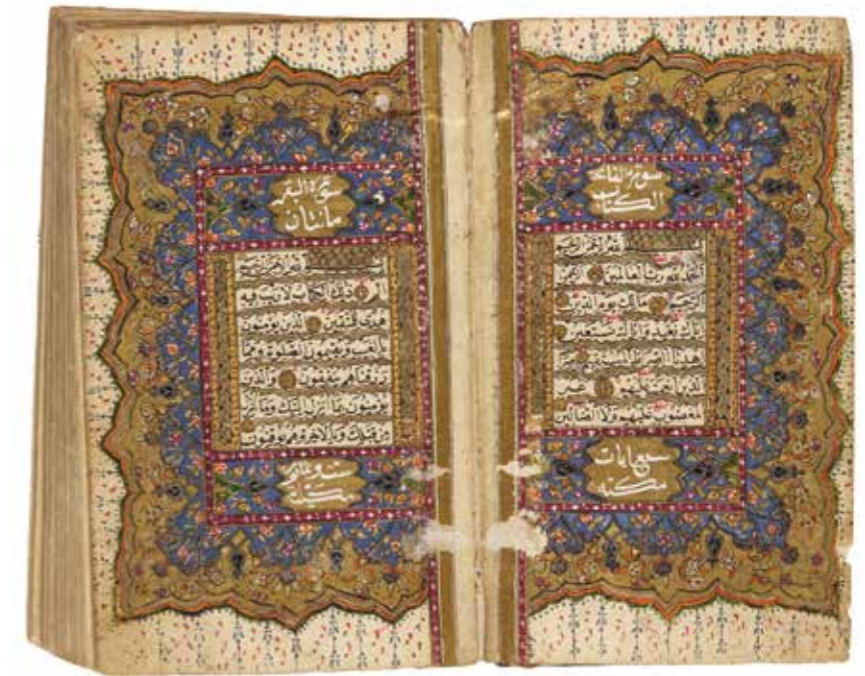 سورة الفاتحة
الكتاب
بسم الله الرحمن الرحيم
الحمد لله رب العالمين الرحمن
الرحيم مالك يوم الدين
اياك نعبد واياك نستعين
اهدنا الصراط المستقيم صراط
الذين انعمت عليهم غير
المغضوب عليهم ولا الضالين
سبع ايات
مكية
سورة البقرة
مائتان
بسم الله الرحمن الرحيم
الم ذلك الكتاب لا ريب فيه
هدى للمتقين الذين يؤمنون
بالغيب ويقيمون الصلوة ومما
رزقناهم ينفقون والذين
يؤمنون بما انزل اليك وما انزل
من قبلك وبالاخرة هم يوقنون